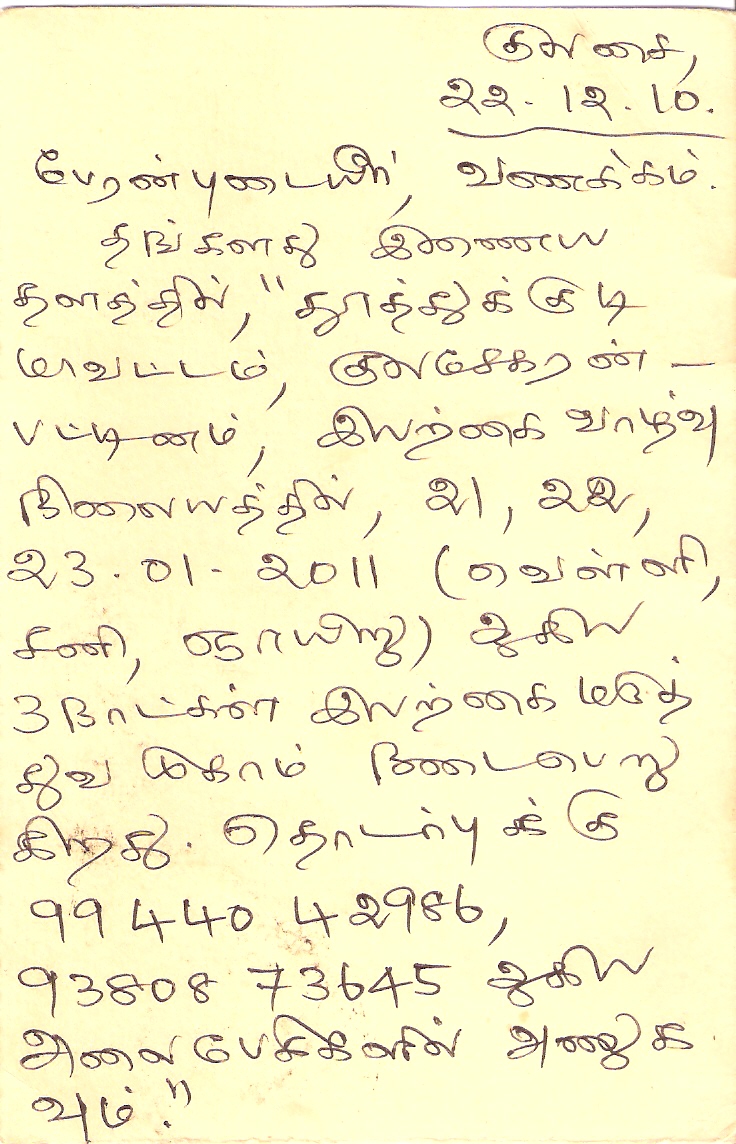 குலசை,
22.12.10.
பேரன்புடையீர், வணக்கம்.
தங்களது இணைய
தளத்தில், "தூத்துக்குடி
மாவட்டம், குலசேகரன் –
பட்டினம், இயற்கை வாழ்வு
நிலையத்தில், 21, 22,
23.01.2011 (வெள்ளி,
சனி, ஞாயிறு) ஆகிய
3 நாட்கள் இயற்கை மருத்
துவ முகாம் நடைபெறு
கிறது. தொடர்புக்கு
99440 42986,
93808 73645 ஆகிய
அலைபேசிகளில் அணுக
வும்."